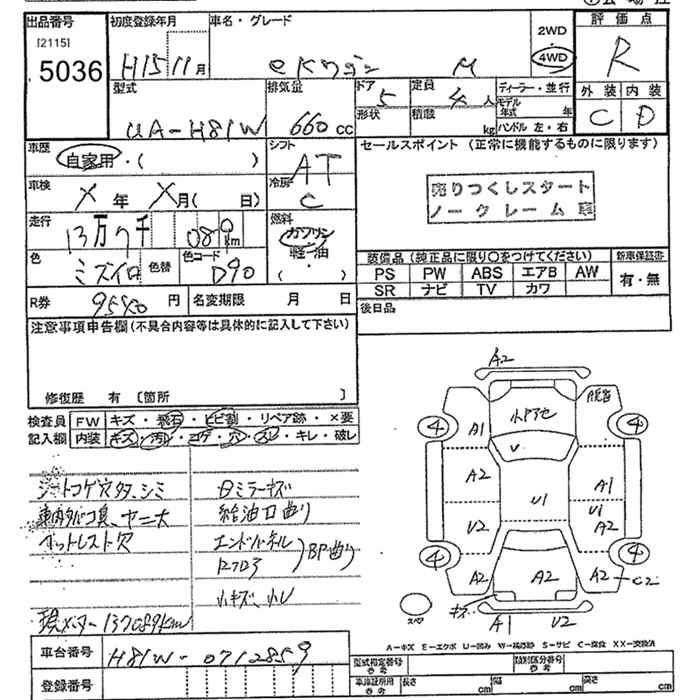 出品番号
[2115]
5036
初度登録年月
H15 11月
車名・グレード
eKワゴン M
2WD
4WD
評価点
R
外装 内装
C D
型式
UA-H81W
排気量
660 cc
ドア
5
形状
定員
4人
積載
kg
ディーラー・並行
モデル年式 年
ハンドル 左・右
車歴
自家用・( )
シフト
AT
車検
X年 X月( 日)
冷房
C
走行
13万7千 080 km
燃料
ガソリン
軽油
( )
色
ミズイロ
色替
色コード
D90
R券 9540円
名変期限 月 日
セールスポイント (正常に機能するものに限ります)
売りつくしスタート
ノークレーム車
装備品(純正品に限り○をつけてください)
新車保証書
PS PW ABS エアB AW
SR ナビ TV カワ
有・無
後日品
注意事項申告欄(不具合内容等は具体的に記入して下さい)
修復歴 有 [箇所 ]
検査員
記入欄
FW キズ・飛石・ヒビ割・リペア跡・×要
内装 キズ・汚レ・コゲ・穴・スレ・キレ・破レ
シートコゲ穴タ、シミ
車内タバコ臭、ヤニ大
ミラーキズ
給油口曲り
エンドパネル
曲り
小キズ、小レ
現メーター137089km
A2
A1
A2
V2
A2
4
4
4
4
V
U1
A2
A1
U1
A2
A2
C2
キズ
A1
U2
スペア
A-キズ E-エクボ U-凹み W-補修跡 S-サビ C-腐食 XX-交換済
車台番号
H81W-0712859
登録番号
型式指定番号
参考
類別区分番号
参考
車庫証明用
参考
長さ cm
幅 cm
高さ cm